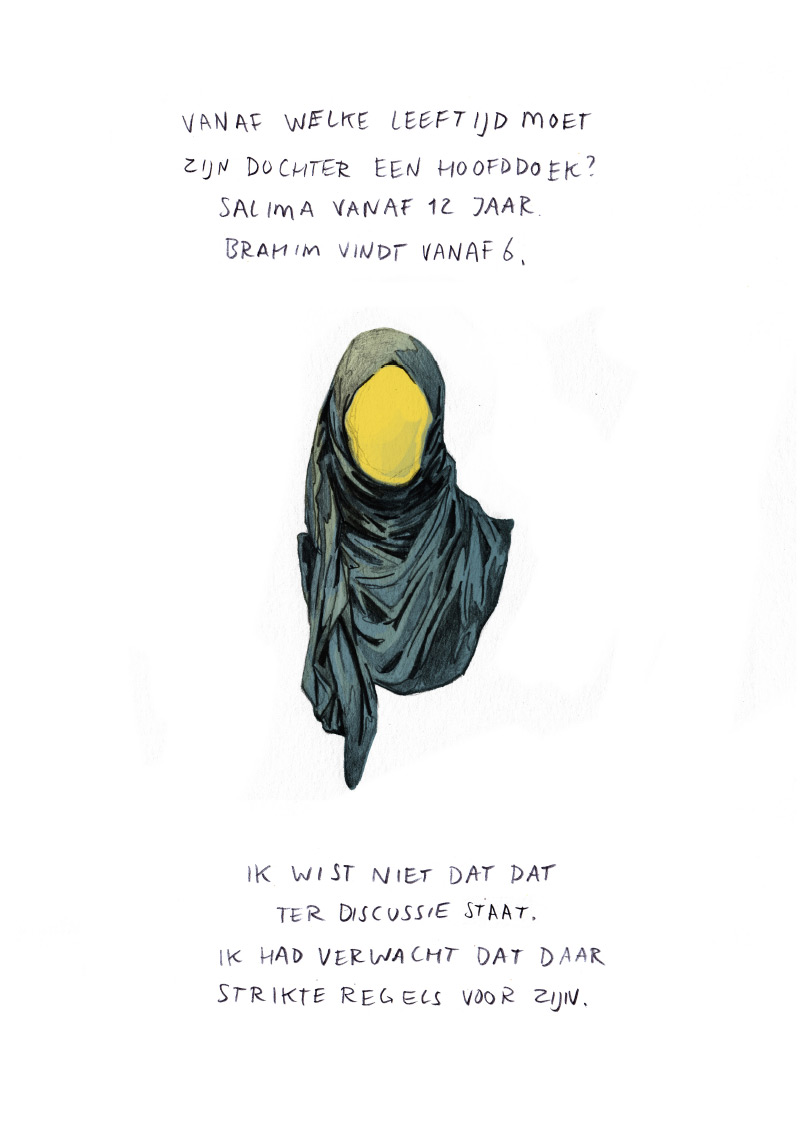 VANAF WELKE LEEFTIJD MOET
ZIJN DOCHTER EEN HOOFDDOEK?
SALIMA VANAF 12 JAAR.
BRAHIM VINDT VANAF 6.
IK WIST NIET DAT DAT
TER DISCUSSIE STAAT.
IK HAD VERWACHT DAT DAAR
STRIKTE REGELS VOOR ZIJN.